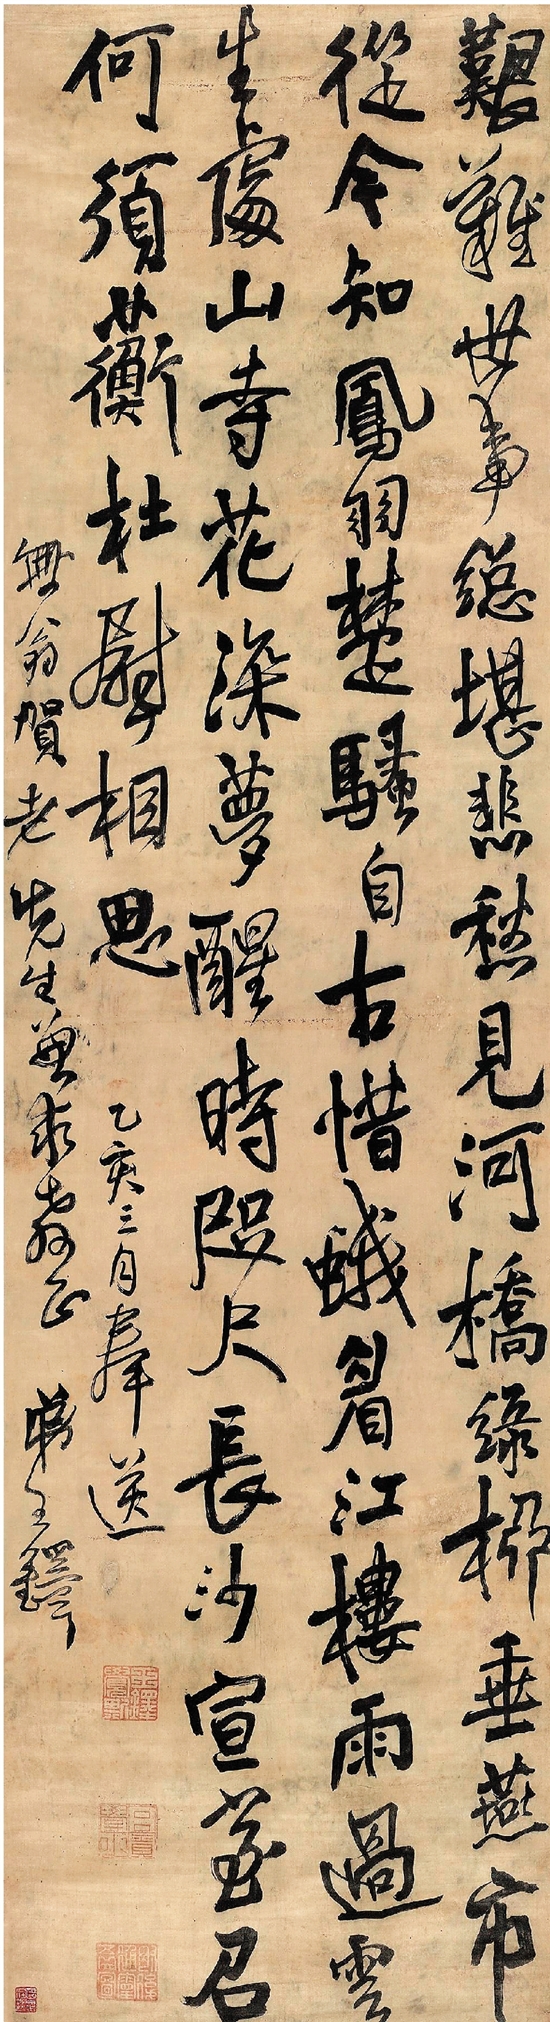 艱難世事總堪悲愁見河橋綠柳垂燕市
從今知鳳羽楚騷自古惜蛾眉江樓雨過雲
生處山寺花深夢醒時咫尺長沙宣室召
何須蘅杜尉相思
乙亥三月奉送
無翁賀老先生兼求教正
弟王鐸